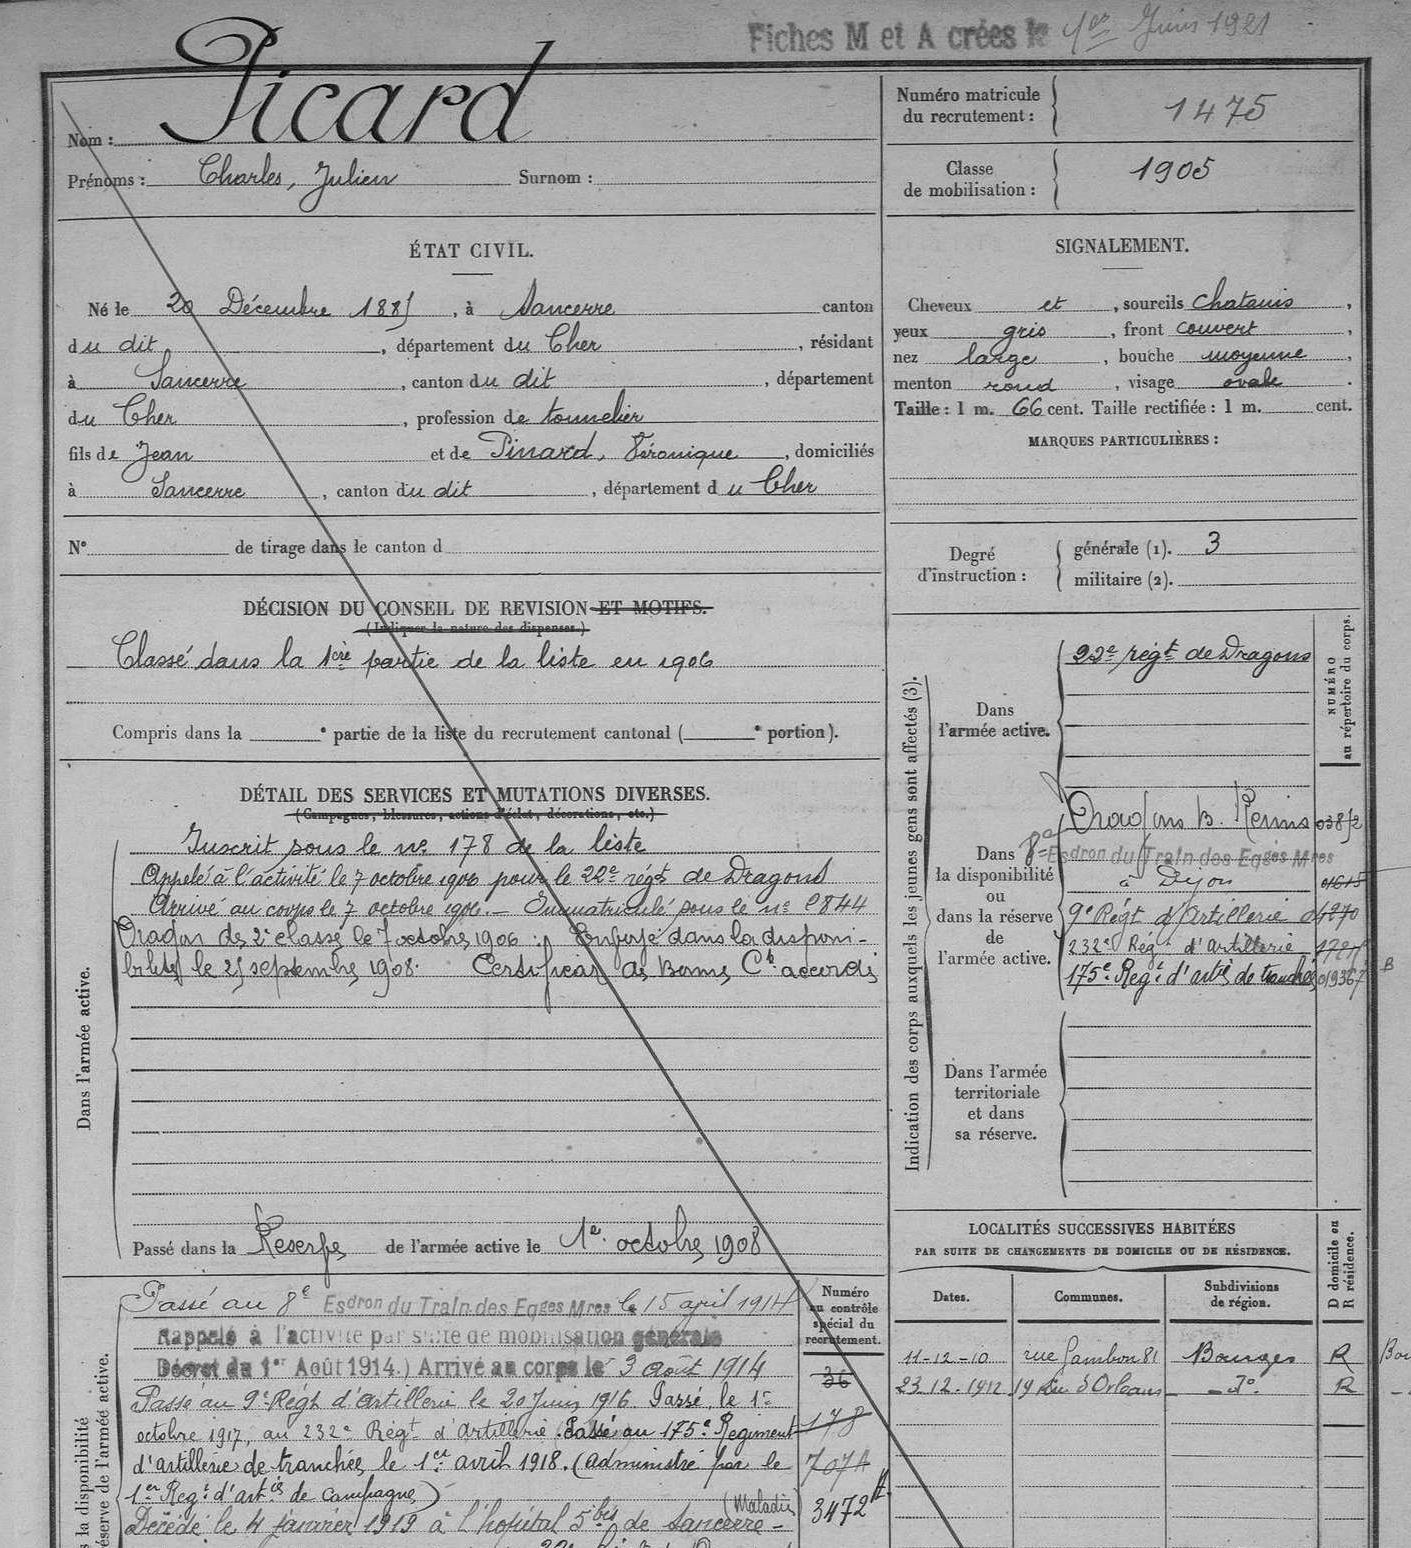 Fiches M et A crées le 1er Juin 1921
Nom : Picard
Prénoms : Charles, Julien Surnom :
Numéro matricule du recrutement : 1475
Classe de mobilisation : 1905
ÉTAT CIVIL.
Né le 20 Décembre 1885, à Sancerre canton
du dit, département du Cher, résidant
à Sancerre, canton du dit, département
du Cher, profession de tonnelier
fils de Jean et de Pinard, Véronique, domiciliés
à Sancerre, canton du dit, département du Cher
N° de tirage dans le canton d
SIGNALEMENT.
Cheveux et, sourcils chatains,
yeux gris, front couvert,
nez large, bouche moyenne,
menton rond, visage ovale.
Taille : 1 m. 66 cent. Taille rectifiée : 1 m. cent.
MARQUES PARTICULIÈRES :
Degré d'instruction :
générale (1). 3
militaire (2).
DÉCISION DU CONSEIL DE REVISION ET MOTIFS.
(Indiquer la nature des dispenses.)
Classé dans la 1ère partie de la liste en 1906
Compris dans la e partie de la liste du recrutement cantonal ( e portion).
DÉTAIL DES SERVICES ET MUTATIONS DIVERSES.
(Campagnes, blessures, actions d'éclat, décorations, etc.)
Dans l'armée active.
Inscrit sous le no 178 de la liste
Appelé à l'activité le 7 octobre 1906 pour le 22e régt de Dragons
Arrivé au corps le 7 octobre 1906. – Immatriculé sous le no 2844
Dragon de 2e classe le 7 octobre 1906.
dans la disponi-
bilité le 25 septembre 1908. Certificat de Bonne Cte accordé
Passé dans la Réserve de l'armée active le 1er octobre 1908
la disponibilité
réserve de l'armée active.
Passé au 8e Esdron du Train des Eqges Mres le 15 april 1914
Rappelé à l'activité par suite de mobilisation générale
Décret du 1er Août 1914.) Arrivé au corps le 3 août 1914
Passé au 9e Régt d'Artillerie le 20 Juin 1916. Passé, le 1er
octobre 1917, au 232e Régt d'Artillerie. Passé au 175e Régiment
d'artillerie de tranchée le 1er avril 1918. (administré par le
1er Regt d'artie de campagne)
Décédé le 4 janvier 1919 à l'hopital 5bis de Sancerre – (Maladie)
Numéro au contrôle spécial du recrutement.
36
178
707A
3472
Indication des corps auxquels les jeunes gens sont affectés (3).
NUMÉRO au répertoire du corps.
Dans l'armée active.
22e régt de Dragons
Dans la disponibilité ou dans la réserve de l'armée active.
Dragons B.
8e Esdron du Train des Eqges Mres
à Dijon
9e Régt d'Artillerie
232e Régt d'Artillerie
175e Regt d'artie de tranchée 019367
B
Dans l'armée territoriale et dans sa réserve.
LOCALITÉS SUCCESSIVES HABITÉES
PAR SUITE DE CHANGEMENTS DE DOMICILE OU DE RÉSIDENCE.
D domicile ou R résidence.
Dates. Communes. Subdivisions de région.
11-12-10 rue Gambon 81 Bourges R
23.12.1912 19 Rue d'Orléans – do – R